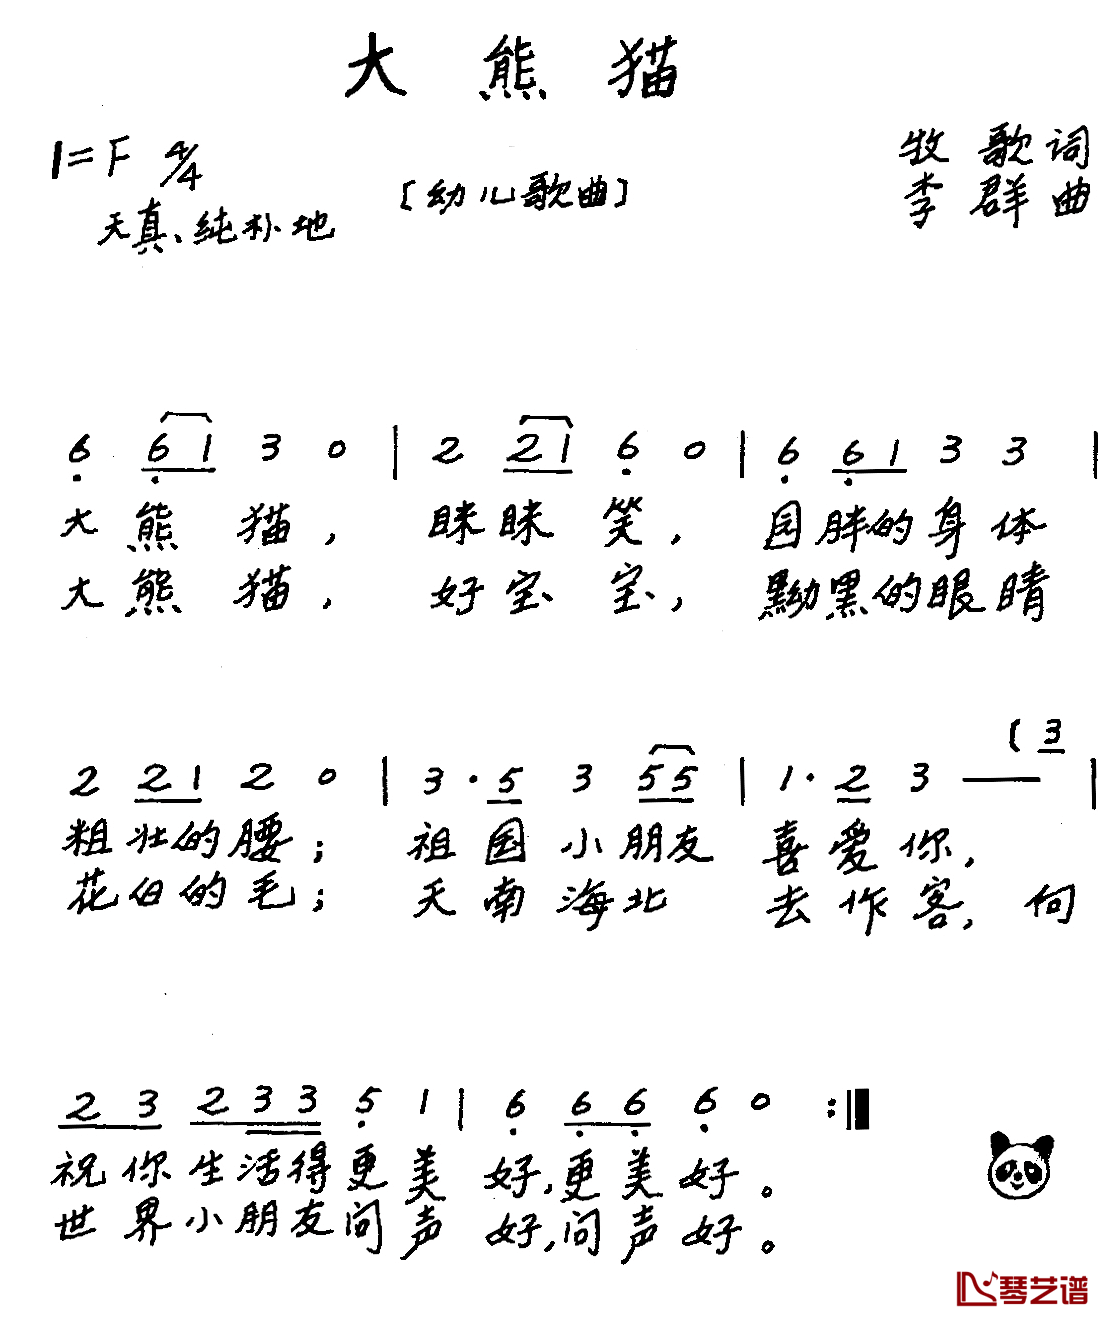 大 熊 猫
1=F 4/4
牧 歌 词
[幼儿歌曲]
李 群 曲
天真、纯朴地
6 6 1 3 0 | 2 2 1 6 0 | 6 6 1 3 3 |
大 熊 猫, 眯 眯 笑, 园 胖 的 身 体
大 熊 猫, 好 宝 宝, 黝 黑 的 眼 睛
( 3
2 2 1 2 0 | 3 · 5 3 5 5 | 1 · 2 3 — |
粗 壮 的 腰; 祖 国 小 朋 友 喜 爱 你,
花 白 的 毛; 天 南 海 北 去 作 客, 向
2 3 2 3 3 5 1 | 6 6 6 6 0 :‖
祝 你 生 活 得 更 美 好, 更 美 好。
世 界 小 朋 友 问 声 好, 问 声 好。
琴艺谱